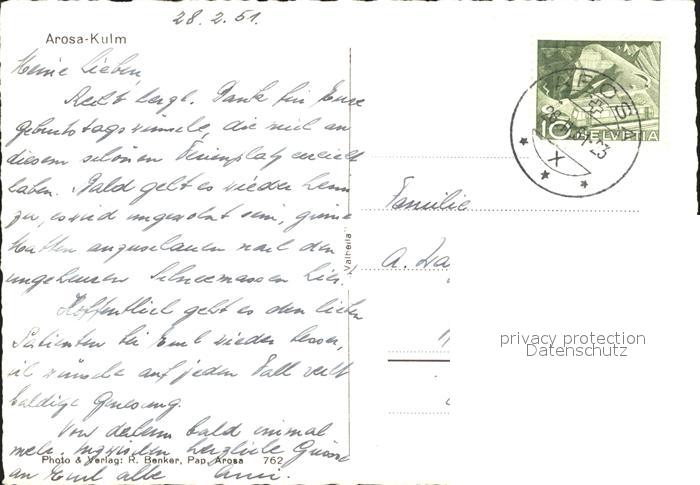 28. 2. 51.
Arosa-Kulm
Meine Lieben,
Recht herzl. Dank für Eure
Geburtstagswünsche, die mich an
diesem schönen Ferienplatz erreicht
haben. Bald geht es wieder heim
zu, es wird ungewohnt sein, grüne
Matten anzuschauen nach den
ungeheuren Schneemassen hier!
Hoffentlich geht es den lieben
Patienten bei Euch wieder besser,
ich wünsche auf jeden Fall recht
baldige Genesung.
Von daheim bald einmal
mehr. Inzwischen herzliche Grüsse
an Euch alle
Photo & Verlag: R. Benker, Pap. Arosa 762
„Valhella"
10 HELVETIA
X
Familie
A. Za
privacy protection
Datenschutz